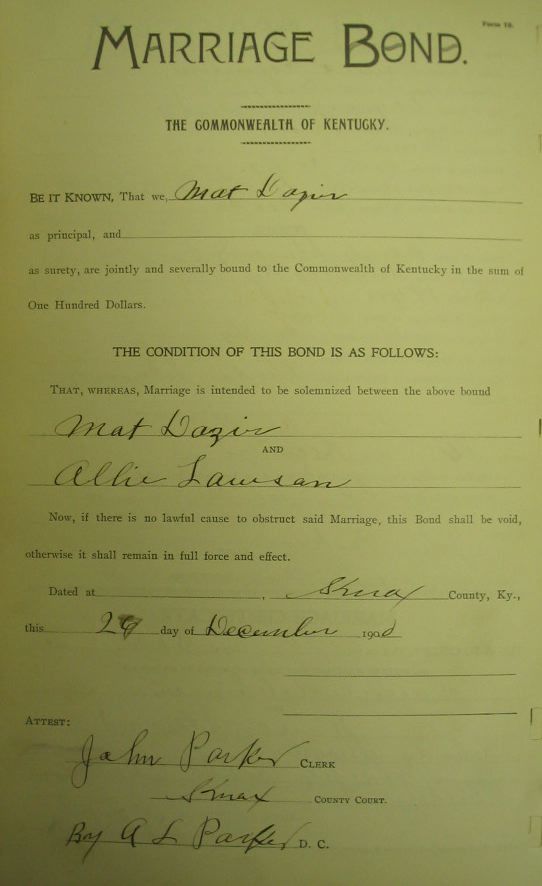 Form 18.
MARRIAGE BOND.
THE COMMONWEALTH OF KENTUCKY.
BE IT KNOWN, That we, Mat Dozir
as principal, and
as surety, are jointly and severally bound to the Commonwealth of Kentucky in the sum of
One Hundred Dollars.
THE CONDITION OF THIS BOND IS AS FOLLOWS:
THAT, WHEREAS, Marriage is intended to be solemnized between the above bound
Mat Dozir
AND
Allie Lawson
Now, if there is no lawful cause to obstruct said Marriage, this Bond shall be void,
otherwise it shall remain in full force and effect.
Dated at , Knox County, Ky.,
this day of December 190
ATTEST:
John Parker CLERK
Knox COUNTY COURT.
By A L Parker D. C.